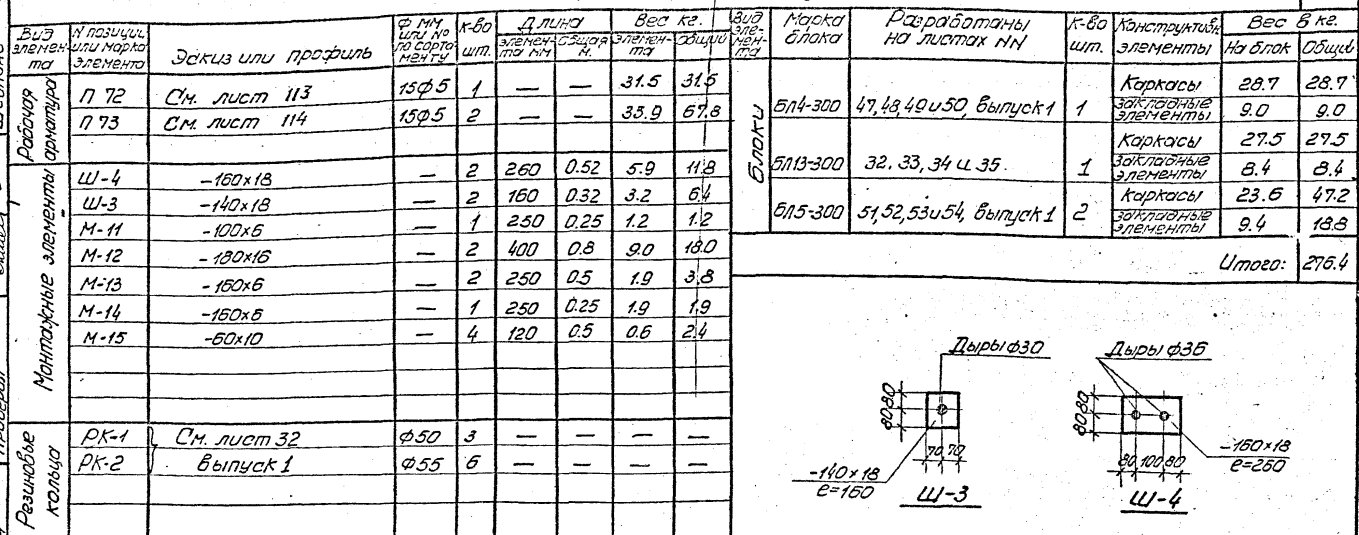 Вид элемен-та | N позиции или марка элемента | Эскиз или профиль | Ф мм или № по сорта-менту | К-во шт. | Длина элемен-та мм | Длина общая м. | Вес кг. элемен-та | Вес кг. Общий
Рабочая арматура
П 72 | См. лист 113 | 15Ф5 | 1 | — | — | 31.5 | 31.5
П 73 | См. лист 114 | 15Ф5 | 2 | — | — | 33.9 | 67.8
Монтажные элементы
Ш-4 | -160х18 | — | 2 | 260 | 0.52 | 5.9 | 11.8
Ш-3 | -140х18 | — | 2 | 160 | 0.32 | 3.2 | 6.4
М-11 | -100х6 | — | 1 | 250 | 0.25 | 1.2 | 1.2
М-12 | -180х16 | — | 2 | 400 | 0.8 | 9.0 | 18.0
М-13 | -160х6 | — | 2 | 250 | 0.5 | 1.9 | 3.8
М-14 | -160х6 | — | 1 | 250 | 0.25 | 1.9 | 1.9
М-15 | -60х10 | — | 4 | 120 | 0.5 | 0.6 | 2.4
Резиновые кольца
РК-1 | См. лист 32 | Ф50 | 3 | — | — | — | —
РК-2 | выпуск 1 | Ф55 | 6 | — | — | — | —
Вид элемен-та | Марка блока | Разработаны на листах NN | К-во шт. | Конструктивн. элементы | Вес в кг. На блок | Вес в кг. Общий
Блоки
БЛ4-300 | 47,48,49 и 50, выпуск 1 | 1 | Каркасы | 28.7 | 28.7
закладные элементы | 9.0 | 9.0
БЛ13-300 | 32, 33, 34 и 35. | 1 | Каркасы | 27.5 | 27.5
закладные элементы | 8.4 | 8.4
БЛ5-300 | 51,52,53 и 54, выпуск 1 | 2 | Каркасы | 23.6 | 47.2
закладные элементы | 9.4 | 18.8
Итого: 276.4
Дыры ф30
80 80
70 70
-140×18
е=160
Ш-3
Дыры ф36
80 80
80 100 80
-160×18
е=260
Ш-4
Проверил